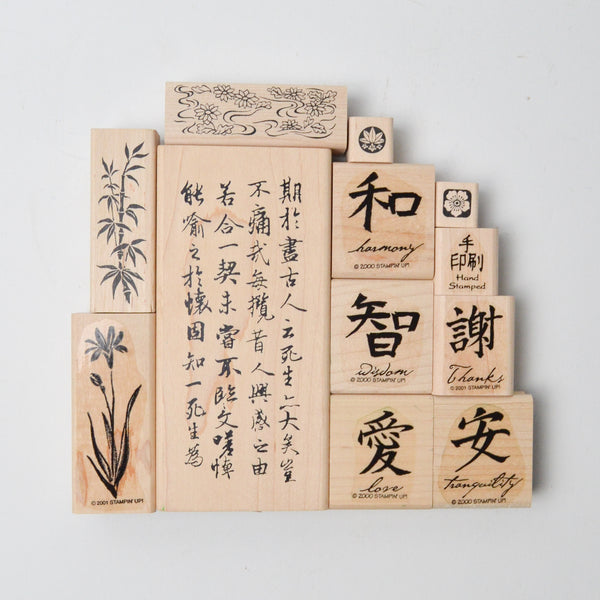 期於盡古人云死生亦大矣豈
不痛哉每攬昔人興感之由
若合一契未嘗不臨文嗟悼
能喻之於懷固知一死生為
和
harmony
© 2000 STAMPIN' UP!
手
印刷
Hand
Stamped
智
wisdom
© 2000 STAMPIN' UP!
謝
Thanks
© 2001 STAMPIN' UP!
愛
love
© 2000 STAMPIN' UP!
安
tranquility
© 2000 STAMPIN' UP!
© 2001 STAMPIN' UP!